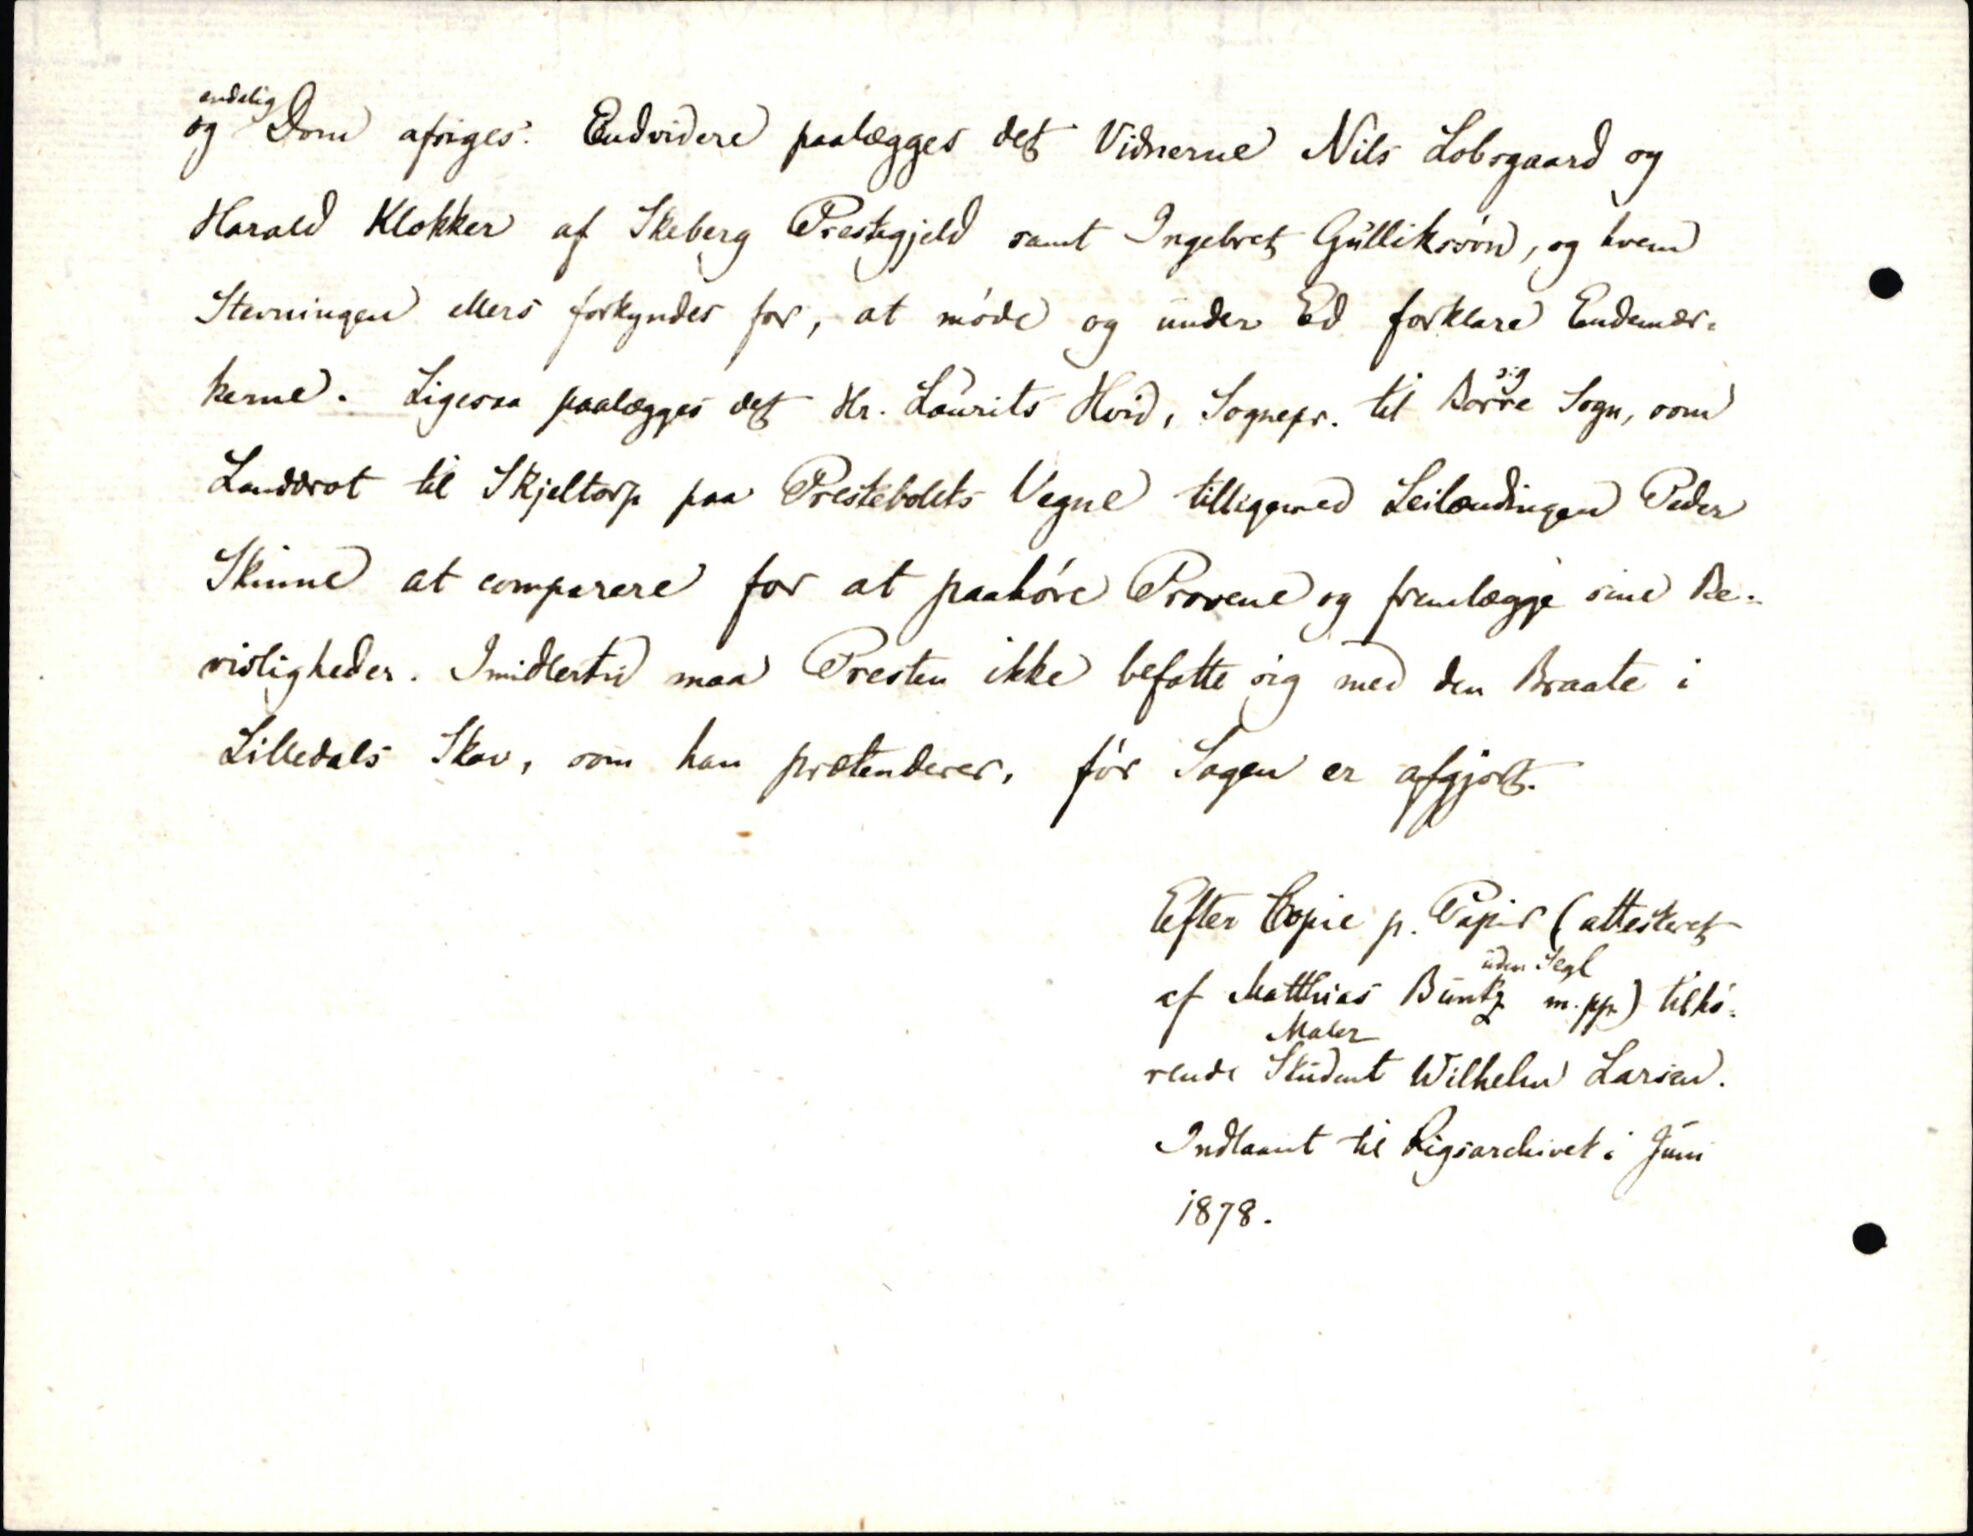 og endelig Dom afsiges. Endvidere paalægges det Vidnerne Nils Lobsgaard og
Harald Klokker af Skeberg Prestegjeld samt Ingebret Gulliksøn, og hvem
Stevningen ellers forkyndes for, at møde og under Ed forklare Endemær-
kerne. Ligesaa paalægges det Hr. Laurits Hvid, Sognepr. til Borre sig Sogn, som
Landdrot til Skjeltorp paa Prestebolets Vegne tilligemed Leilændingen Peder
Skinne at comparere for at paahøre Provene og fremlægge sine Be-
visligheder. Imidlertid maa Presten ikke befatte sig med den Braate i
Lilledals Skov, som han prætenderer, før Sagen er afgjort.
Efter Copie p. Papir (attesteret
af Matthias Buntz uden Segl m.pp.) tilhø-
rende Maler Student Wilhelm Larsen.
Indlaant til Rigsarchivet i Juni
1878.